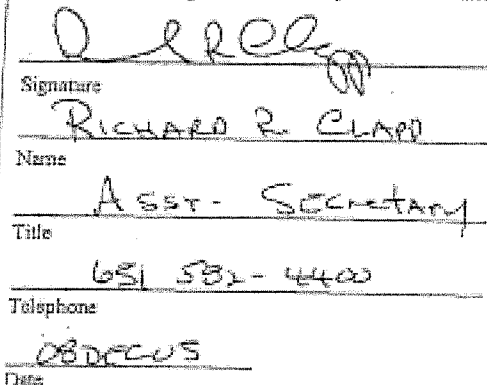 Signature
RICHARD R. CLAPP
Name
ASST- SECRETARY
Title
651 592-4400
Telephone
08DEC05
Date